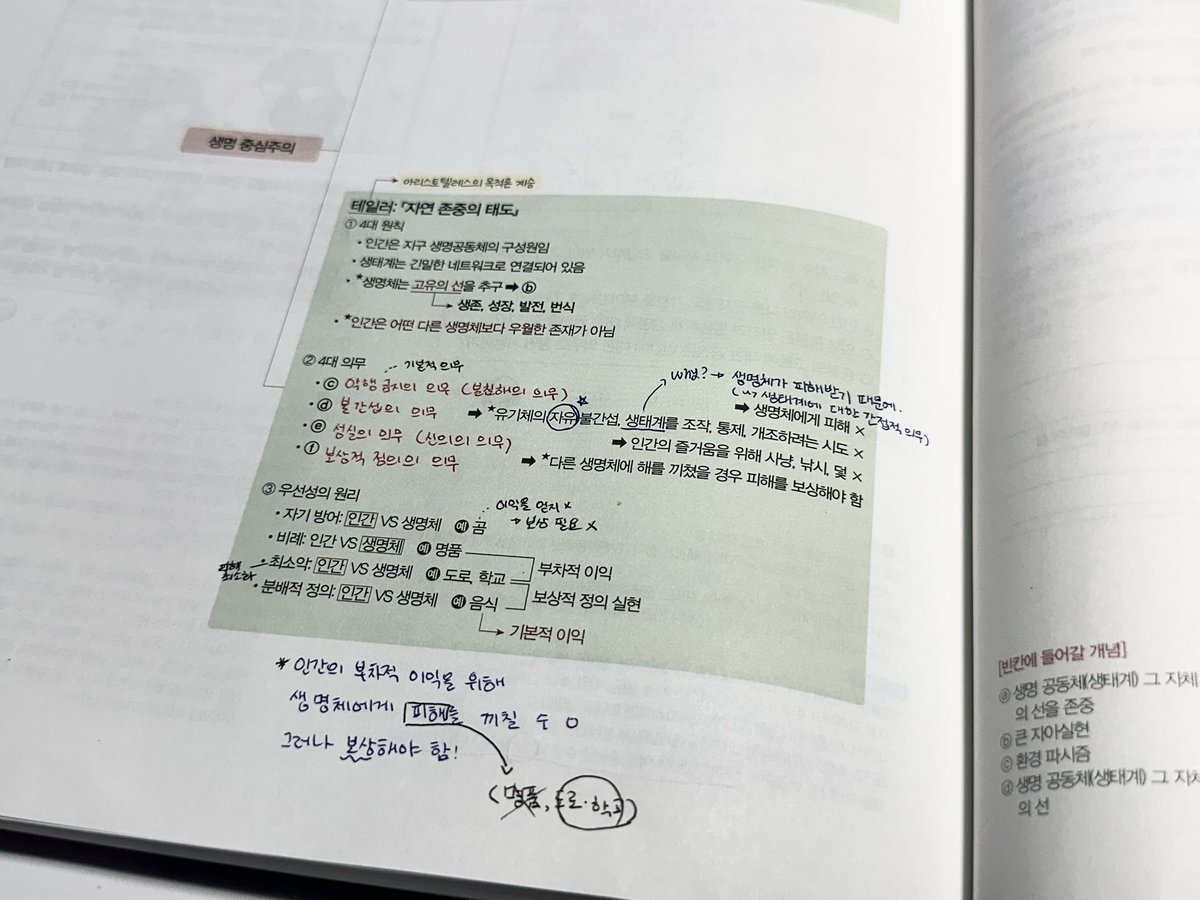 생명 중심주의
아리스토텔레스의 목적론 계승
테일러: 「자연 존중의 태도」
① 4대 원칙
• 인간은 지구 생명공동체의 구성원임
• 생태계는 긴밀한 네트워크로 연결되어 있음
• *생명체는 고유의 선을 추구 ➡ ⓑ
생존, 성장, 발전, 번식
• *인간은 어떤 다른 생명체보다 우월한 존재가 아님
② 4대 의무
기본적 의무
• ⓒ 악행 금지의 의무 (불침해의 의무)
why? → 생명체가 피해받기 때문에.
(생태계에 대한 간접적 의무)
➡ 생명체에게 피해 ×
• ⓓ 불간섭의 의무 ➡ *유기체의 자유 불간섭, 생태계를 조작, 통제, 개조하려는 시도 ×
• ⓔ 성실의 의무 (신의의 의무) ➡ 인간의 즐거움을 위해 사냥, 낚시, 덫 ×
• ⓕ 보상적 정의의 의무 ➡ *다른 생명체에 해를 끼쳤을 경우 피해를 보상해야 함
③ 우선성의 원리
이익을 얻지 ×
→ 보상 필요 ×
• 자기 방어: 인간 VS 생명체 예 곰
• 비례: 인간 VS 생명체 예 명품
부차적 이익
피해 최소화
• 최소악: 인간 VS 생명체 예 도로, 학교
보상적 정의 실현
• 분배적 정의: 인간 VS 생명체 예 음식
기본적 이익
* 인간의 부차적 이익을 위해
생명체에게 피해를 끼칠 수 O
그러나 보상해야 함!
(명품, 도로·학교)
[빈칸에 들어갈 개념]
ⓐ 생명 공동체(생태계) 그 자체
의 선을 존중
ⓑ 큰 자아실현
ⓒ 환경 파시즘
ⓓ 생명 공동체(생태계) 그 자체
의 선